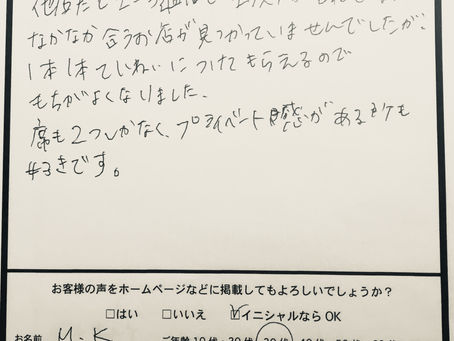 なかなか合うお店が見つかっていませんでしたが、
1本1本ていねいにつけてもらえるので
もちがよくなりました。
席も2つしかなく、プライベート感がある所も
好きです。
お客様の声をホームページなどに掲載してもよろしいでしょうか？
□はい □いいえ ☑イニシャルなら OK
お名前 M.K ご年齢 10代・20代・30代・40代・50代